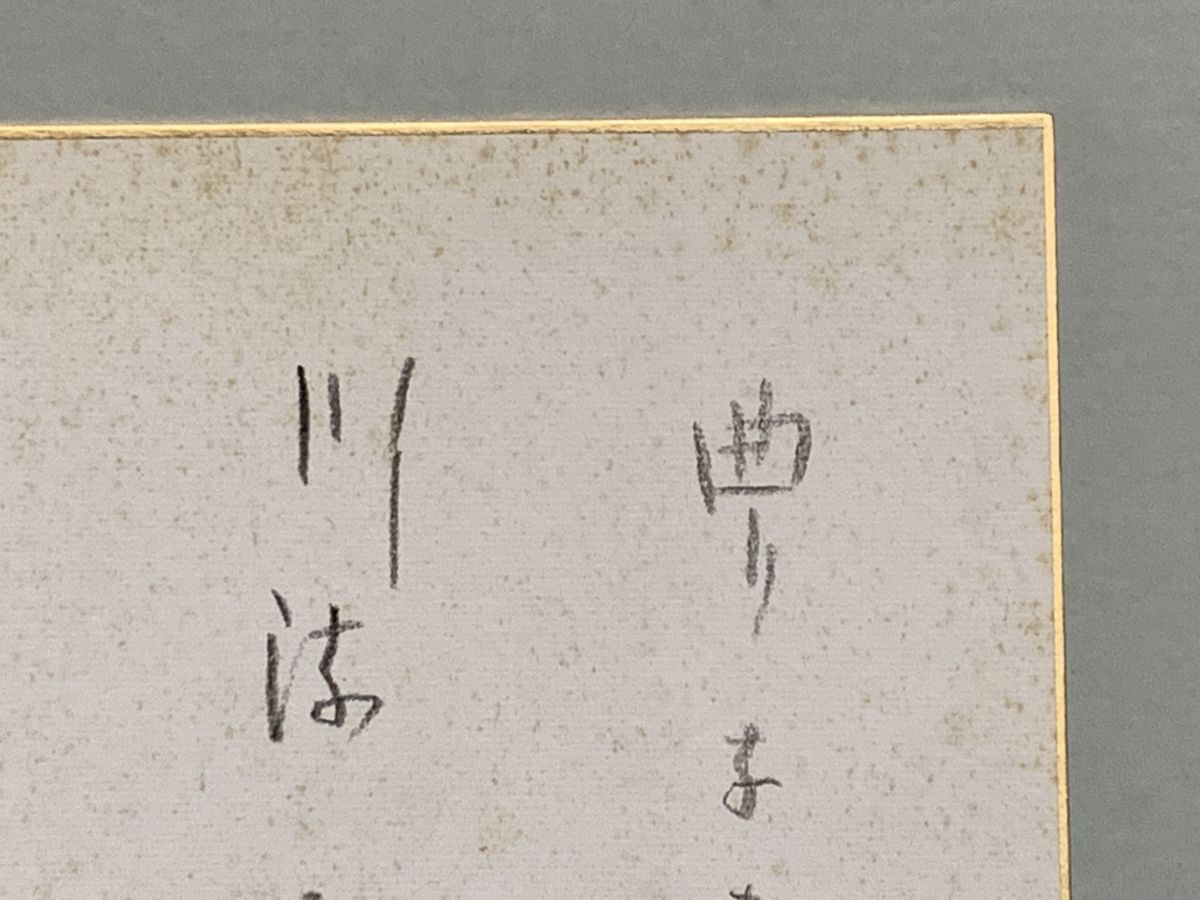 曲りま
川流